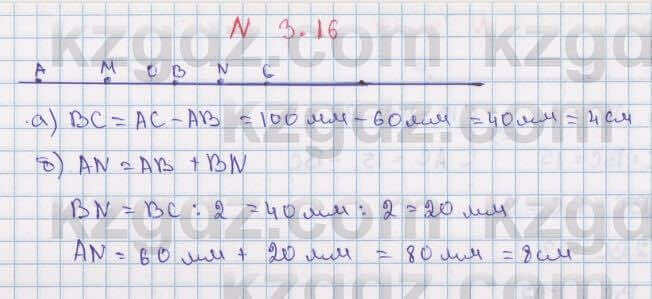 N 3.16
A M O B N C
а) BC = AC - AB = 100 мм - 60 мм = 40 мм = 4 см
б) AN = AB + BN
BN = BC : 2 = 40 мм : 2 = 20 мм
AN = 60 мм + 20 мм = 80 мм = 8 см
kzgdz.com